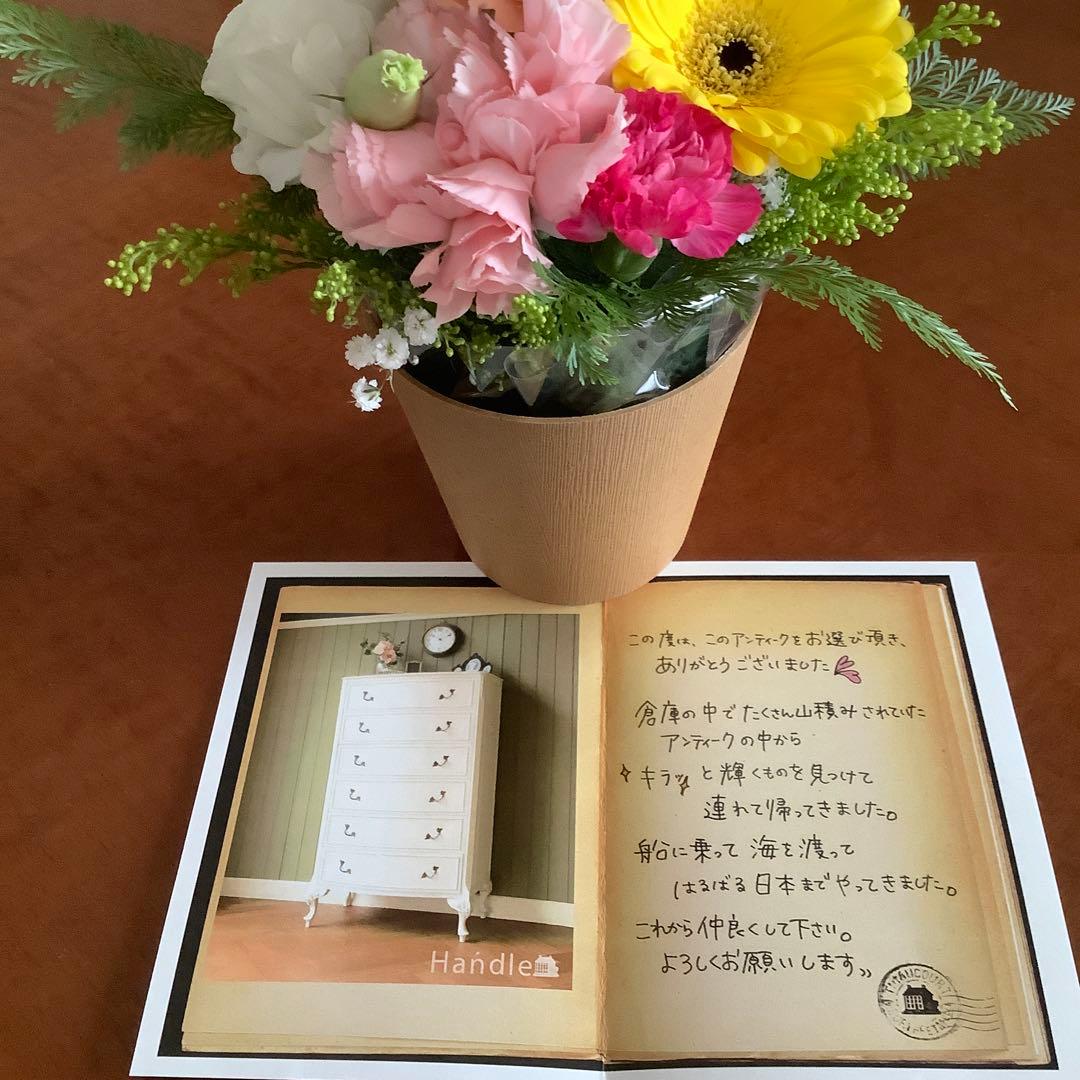 Handle
この度は、このアンティークをお選び頂き、
ありがとうございました
倉庫の中でたくさん山積みされていた
アンティークの中から
キラッと輝くものを見つけて
連れて帰ってきました。
船に乗って海を渡って
はるばる日本までやってきました。
これから仲良くして下さい。
よろしくお願いします